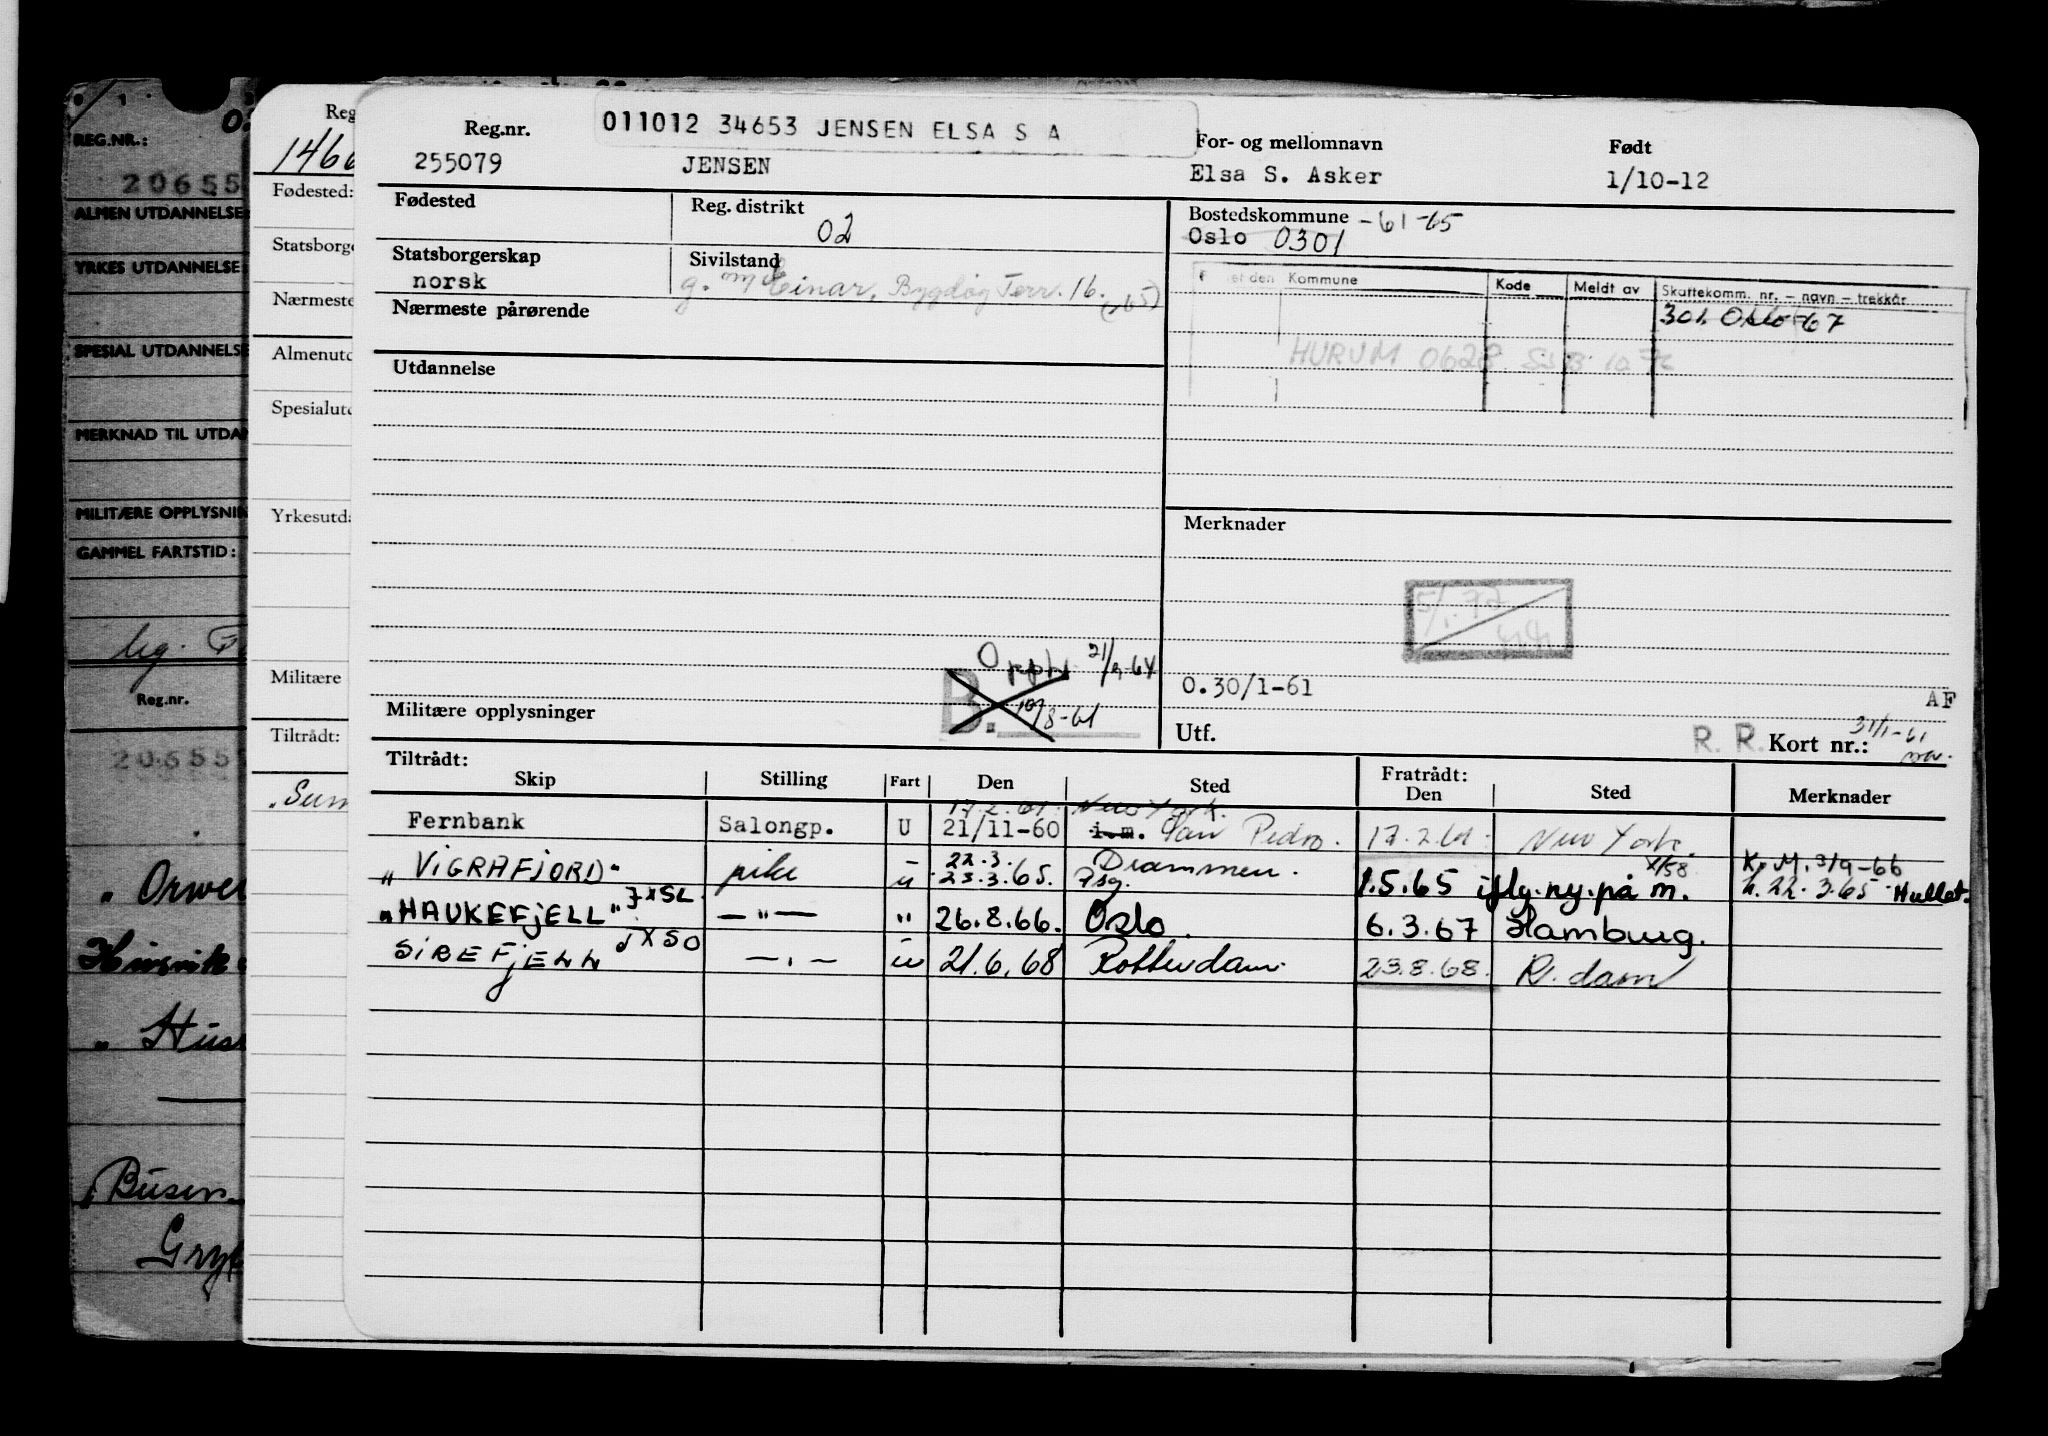 REG.NR.:
20655
ALMEN UTDANNELSE
YRKES UTDANNELSE
SPESIAL UTDANNELSE
MERKNAD TIL UTDAN
MILITÆRE OPPLYSNIN
GAMMEL FARTSTID:
Reg.nr.
20655
" Orwe
" Hus
Reg
146
Fødested:
Statsborge
Nærmeste
Almenutd
Spesialutd
Yrkesutda
Militære
Tiltrådt:
011012 34653 JENSEN ELSA S A
Reg.nr.
For- og mellomnavn
Født
255079 JENSEN Elsa S. Asker 1/10-12
Fødested
Reg. distrikt
02
Bostedskommune -61-65
Oslo 0301
Statsborgerskap
norsk
Sivilstand
g. m/ Einar, Bygdøy Terr. 16. (65)
Nærmeste pårørende
Kommune Kode Meldt av Skattekomm. nr. – navn – trekkår
301 Oslo 67
HURUM 0628
Utdannelse
Merknader
21/9-64
B. 10/8-61
0.30/1-61
AF
Militære opplysninger
Utf.
R. R. Kort nr.: 31/1-61
Tiltrådt:
Skip Stilling Fart Den Sted
Fratrådt:
Den Sted Merknader
17.2.61. New York.
Fernbank Salongp. U 21/11-60 i.m. San Pedro. 17.2.61. New York.
"VIGRAFJORD" pike - 22.3. Drammen. X/58 K.M. 3/9-66
u 23.3.65. Psg. 1.5.65 ifly.ny.på m. h. 22.3.65 Hullet.
"HAUKEFJELL" JXSL —"— " 26.8.66. Oslo. 6.3.67 Hamburg.
SIREFJELL JXSO —"— u 21.6.68 Rotterdam. 23.8.68. R.dam